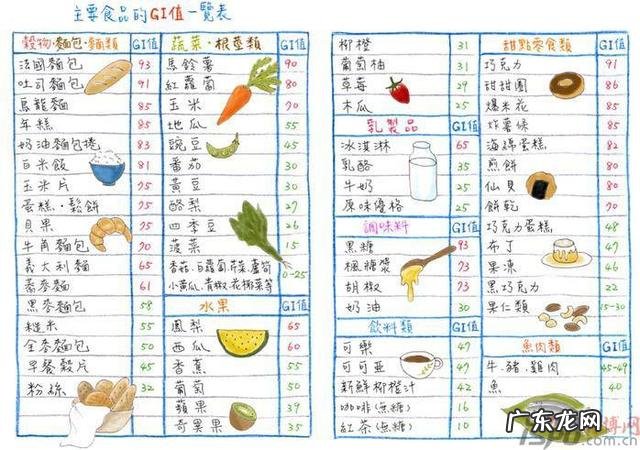 主要食品的GI值一覽表
穀物·麵包·麵類 GI值
法國麵包 93
吐司麵包 91
烏龍麵 85
年糕 85
奶油麵包捲 83
白米飯 81
玉米片 75
蛋糕·鬆餅 75
貝果 75
牛角麵包 75
義大利麵 65
蕎麥麵 61
黑麥麵包 58
糙米 55
全麥麵包 50
早餐穀片 45
粉絲 32
蔬菜·根莖類 GI值
馬鈴薯 90
紅蘿蔔 80
玉米 70
地瓜 55
豌豆 45
番茄 30
黃豆 30
酪梨 27
四季豆 26
菠菜 15
香菇·白蘿蔔·芹菜·蘆筍
小黃瓜·青椒·花椰菜等 10-25
水果 GI值
鳳梨 65
西瓜 60
香蕉 55
葡萄 50
蘋果 39
奇異果 35
柳橙 31
葡萄柚 31
草莓 29
木瓜 25
乳製品 GI值
冰淇淋 65
乳酪 35
牛奶 25
原味優格 25
調味料 GI值
黑糖 93
楓糖漿 73
胡椒 73
奶油 30
飲料類 GI值
可樂 47
可可亞 47
新鮮柳橙汁 42
咖啡(無糖) 16
紅茶(無糖) 10
甜點零食類 GI值
巧克力 91
甜甜圈 86
爆米花 85
炸薯條 85
海綿蛋糕 82
煎餅 80
仙貝 80
餅乾 70
巧克力蛋糕 48
布丁 47
果凍 46
黑巧克力 22
果仁類 15-30
魚肉類 GI值
牛·豬·雞肉 45-49
魚 40
广东龙网